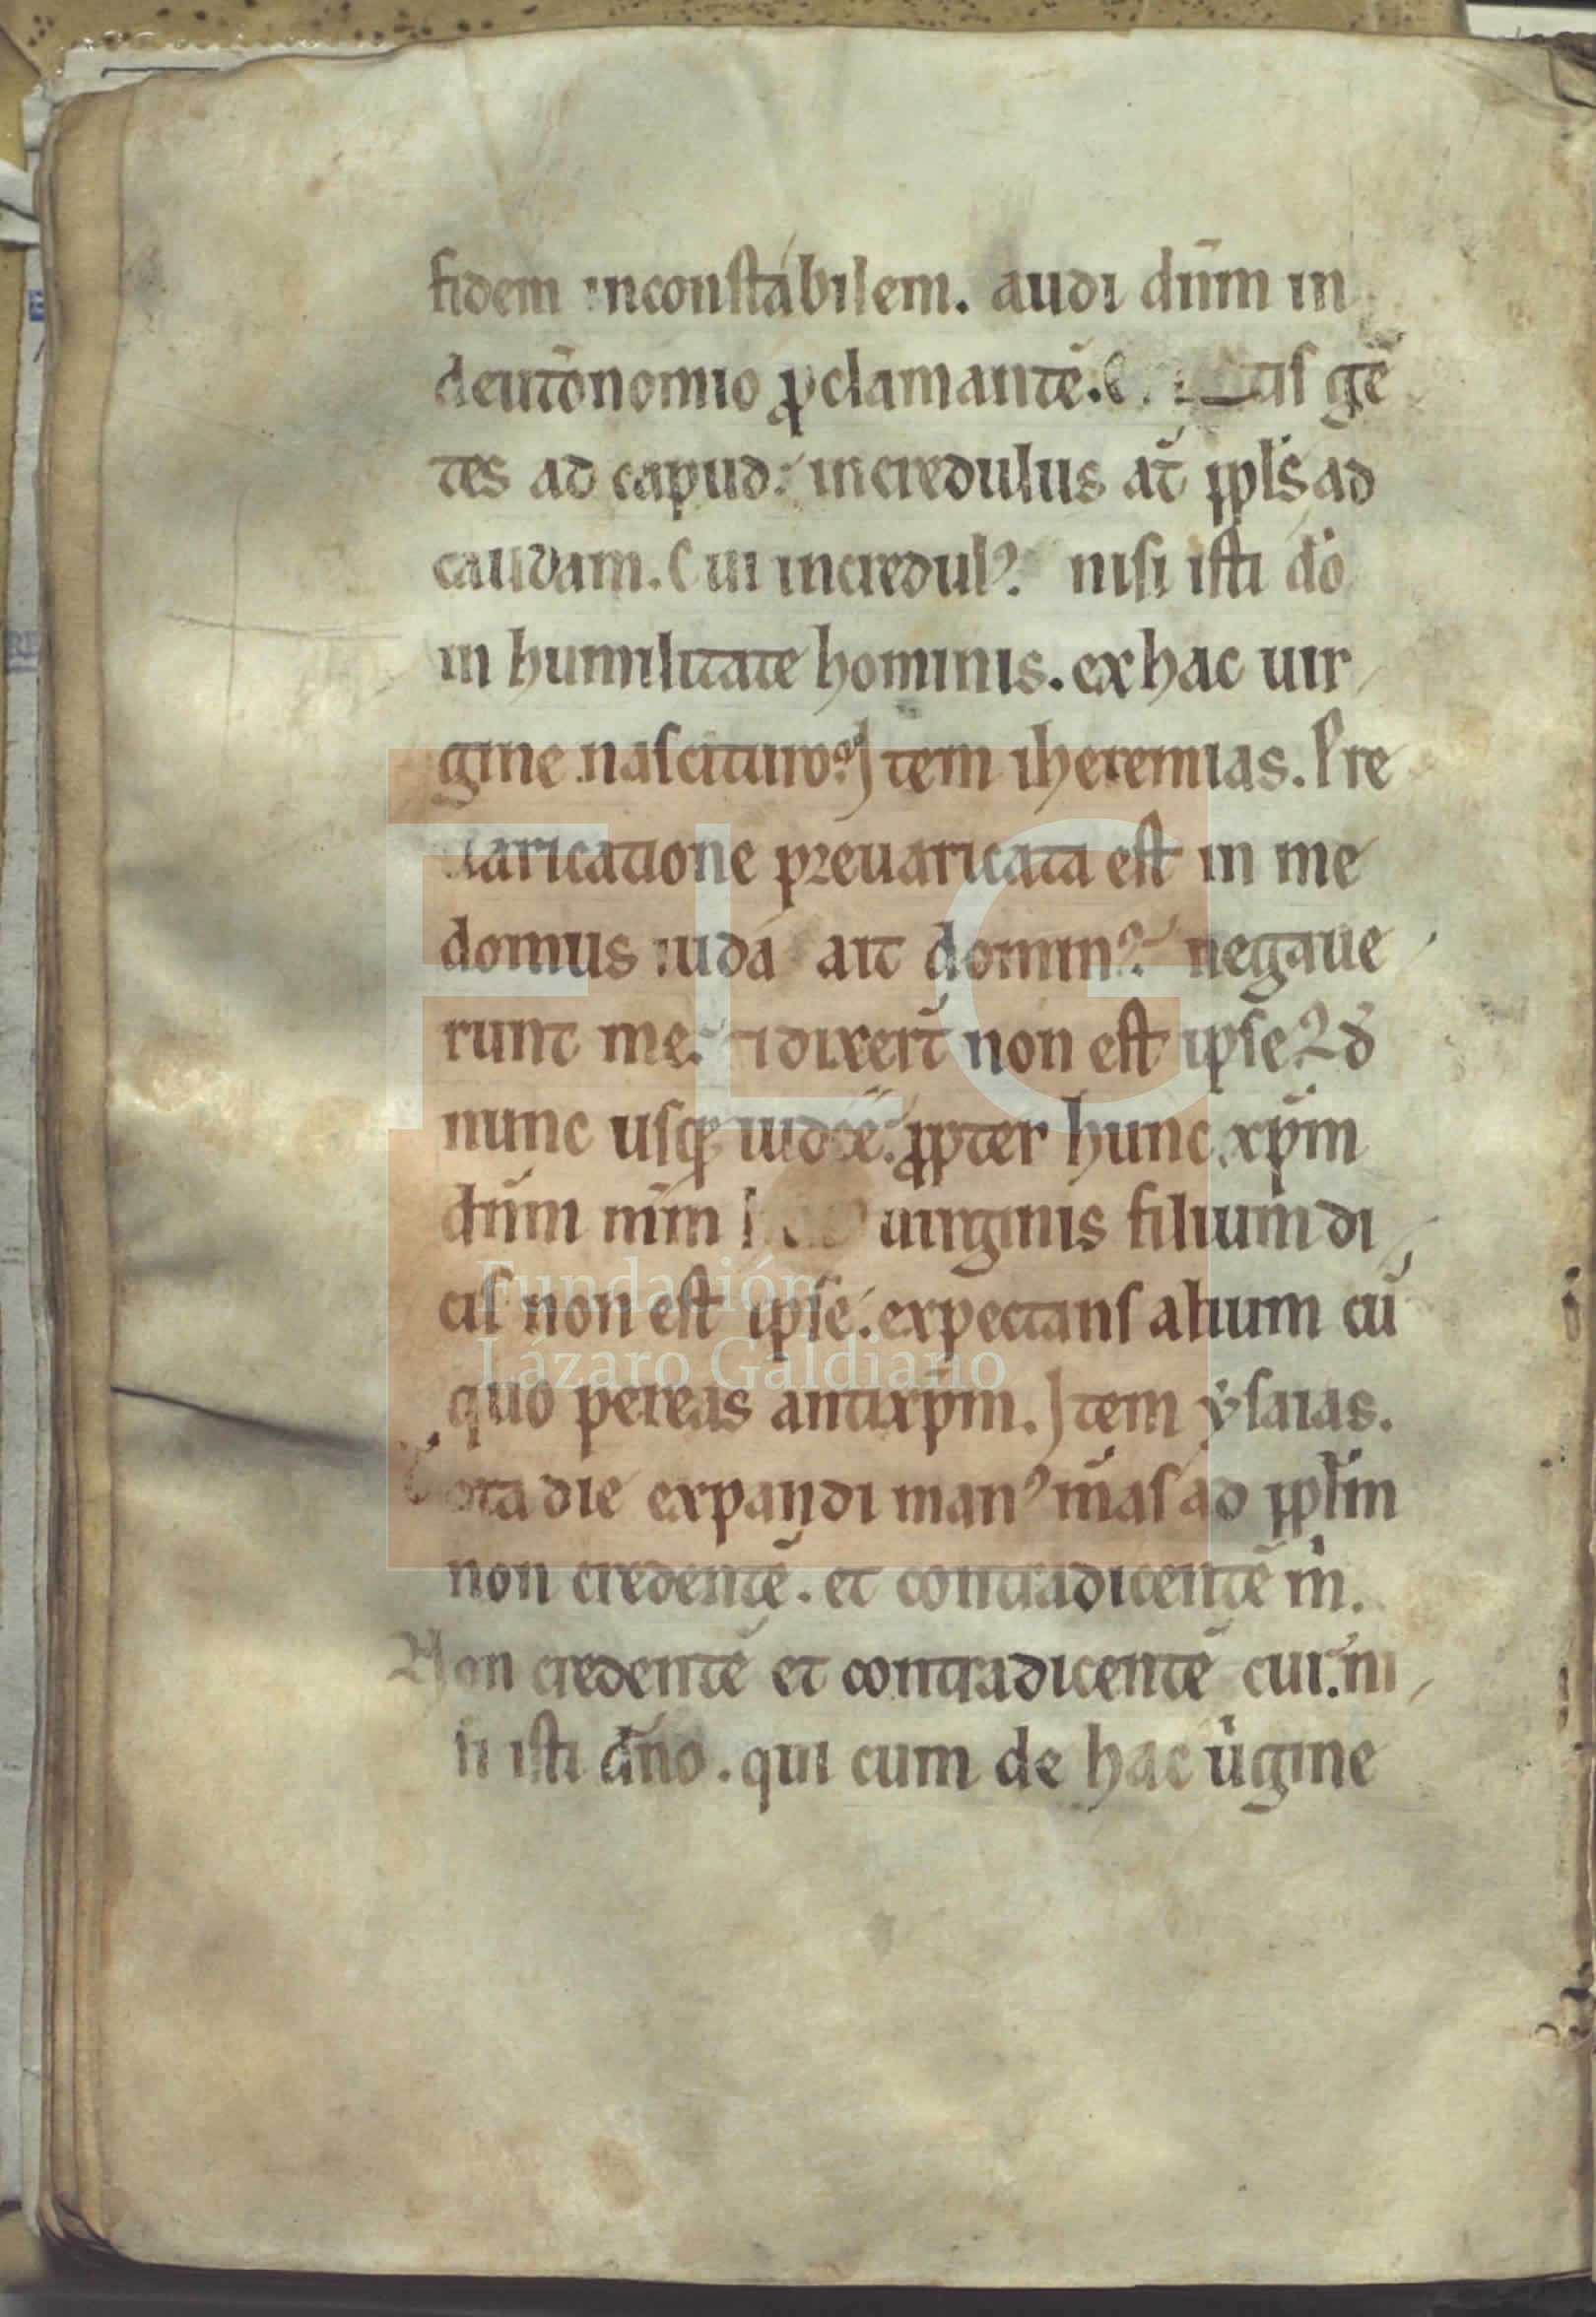 fidem inconstabilem. audi dn̄m in
deut̄onomio ꝓclamantē. gē
tes ad capud. incredulus aū̄t pp̄ls ad
caudam. Cui incredulꝰ. nisi isti dō
in humilitate hominis. ex hac uir
gine nascituro. Item iheremias. Pre
uaricatione preuaricata est in me
domus iuda ait dominꝰ. negaue
runt me. ⁊ dixer̄t non est ipse Ad
nunc usqꝫ iudee. ꝓpter hunc xp̄m
dn̄m nr̄m uirginis filium di
cis non est ipse. expectans alium cū
quo pereas antixp̄m. Item ysaias.
Tota die expandi manꝰ m̄as ad pp̄lm
non credentē. et contradicentē m̄.
Non credentē et contradicentē cui. ni
si isti dn̄o. qui cum de hac u̇gine
Fundación
Lázaro Galdiano
FLG